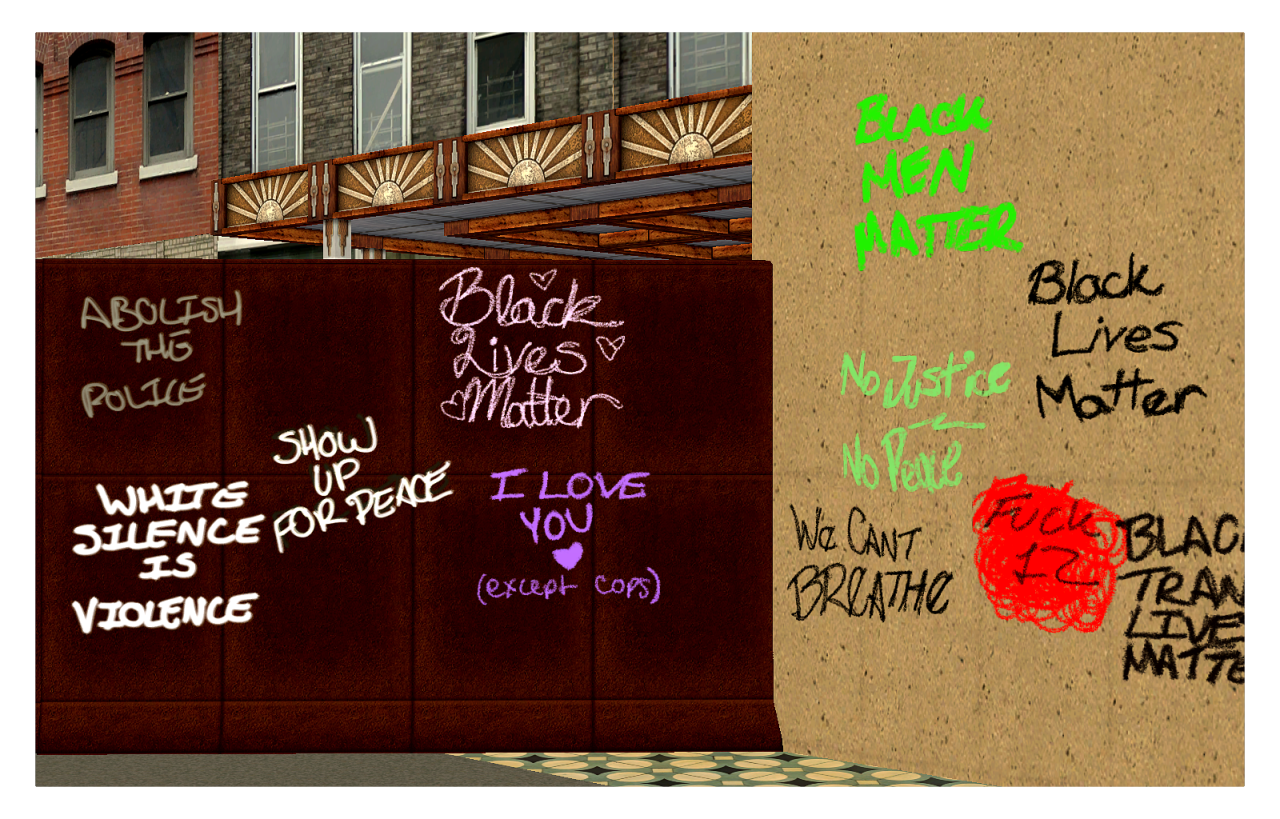 ABOLISH
THE
POLICE
WHITE
SILENCE
IS
VIOLENCE
SHOW
UP
FOR PEACE
Black
Lives
Matter
I LOVE
YOU
(except cops)
BLACK
MEN
MATTER
Black
Lives
Matter
No Justice
No Peace
We CANT
BREATHE
FUCK
12
BLAC
TRAN
LIVE
MATTE